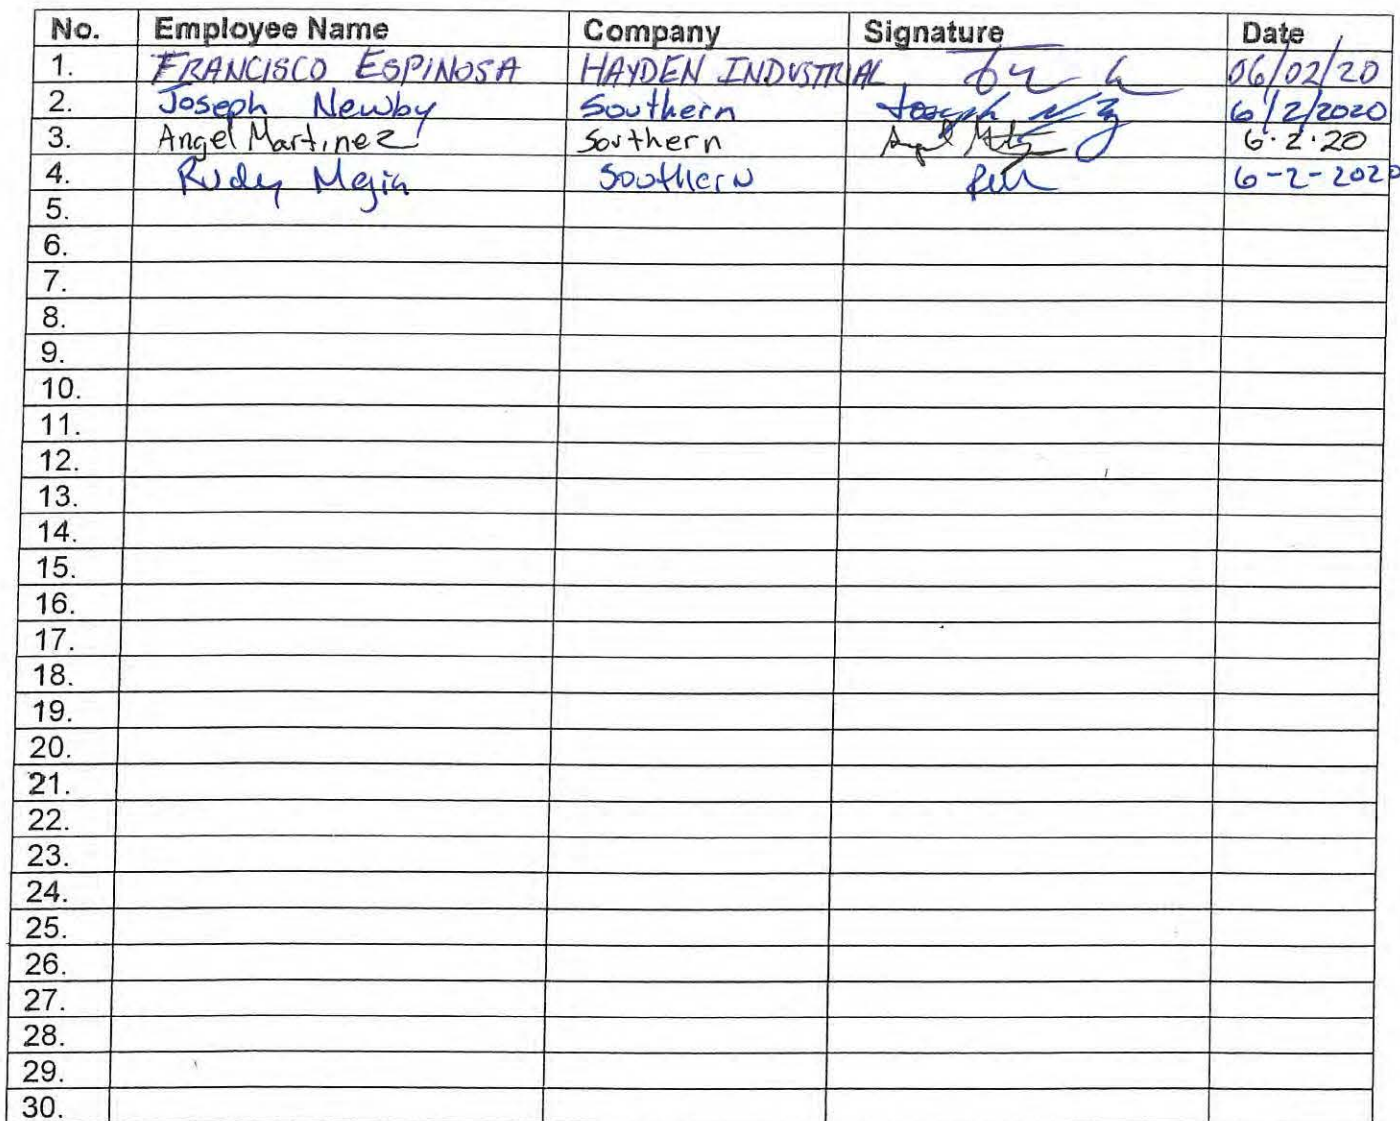 No. Employee Name Company Signature Date
1. FRANCISCO ESPINOSA HAYDEN INDUSTRIAL 06/02/20
2. Joseph Newby Southern Joseph 6/2/2020
3. Angel Martinez Southern Angel 6.2.20
4. Rudy Mejia Southern 6-2-2020
5.
6.
7.
8.
9.
10.
11.
12.
13.
14.
15.
16.
17.
18.
19.
20.
21.
22.
23.
24.
25.
26.
27.
28.
29.
30.